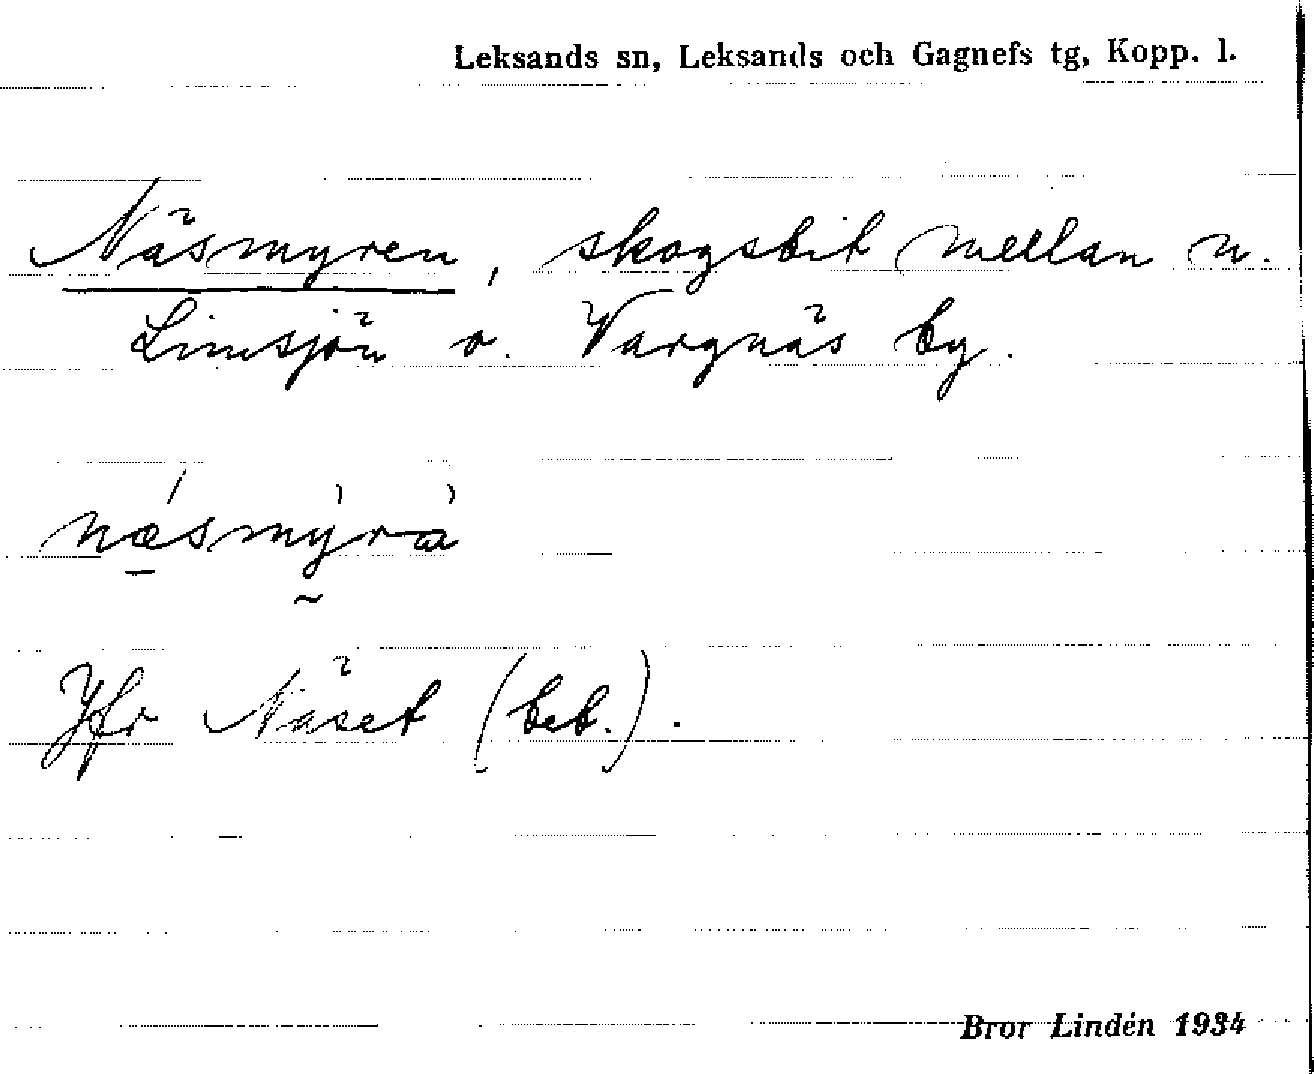 Leksands sn, Leksands och Gagnefs tg, Kopp. l.
Näsmyren, skogsbit mellan n.
Limsjön o. Vargnäs by.
næsmýrа̀
Jfr Näset (beb.).
Bror Lindén 1934